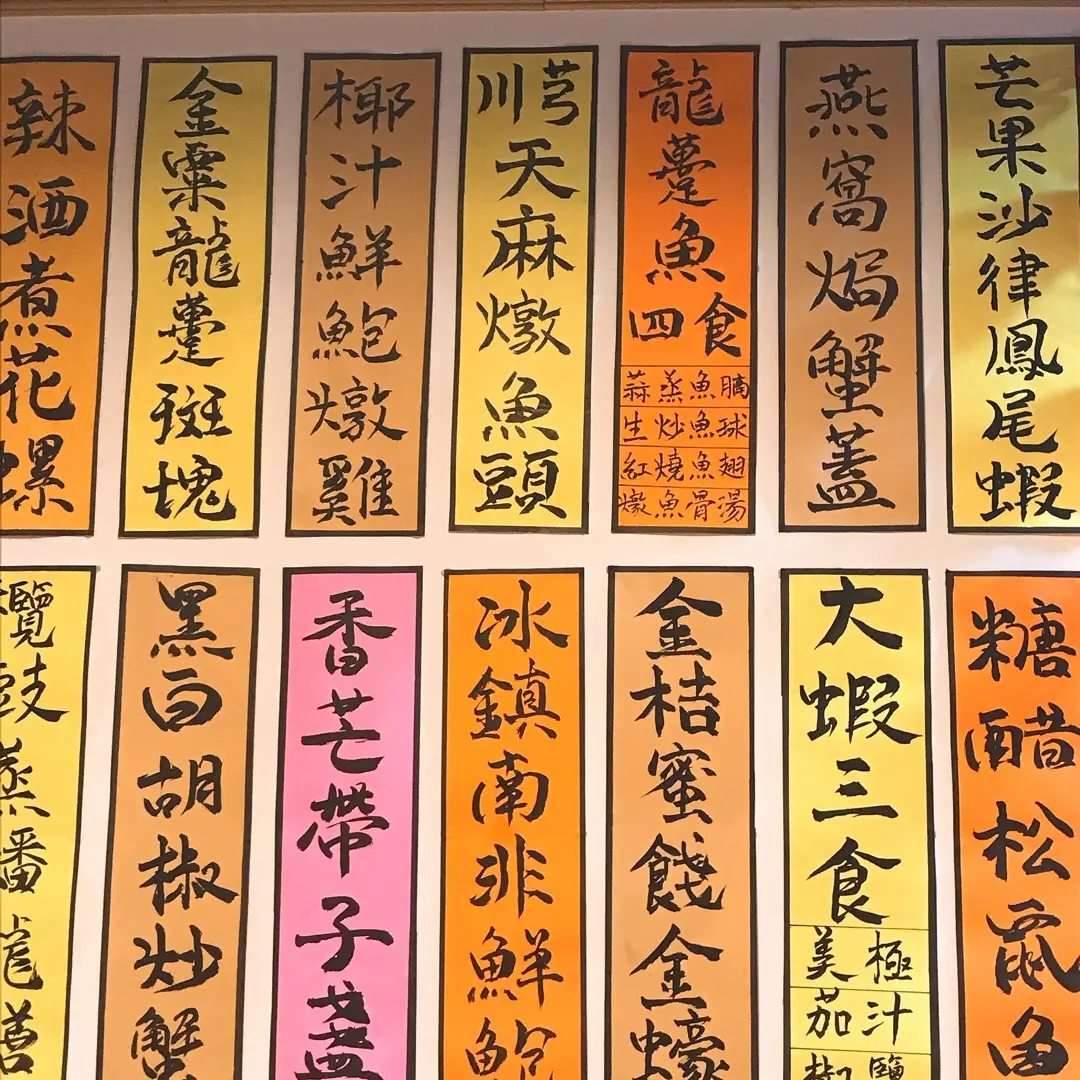 辣酒煮花螺
金粟龍躉斑塊
椰汁鮮鮑燉雞
川芎天麻燉魚頭
龍躉魚四食
蒜蒸魚腩
生炒魚球
紅燒魚翅
燉魚骨湯
燕窩焗蟹蓋
芒果沙律鳳尾蝦
欖豉蒸蟠龍鱔
黑白胡椒炒蟹
香芒帶子盞
冰鎮南非鮮鮑
金桔蜜餞金蠔
大蝦三食
美極
茄汁
椒鹽
糖醋松鼠魚